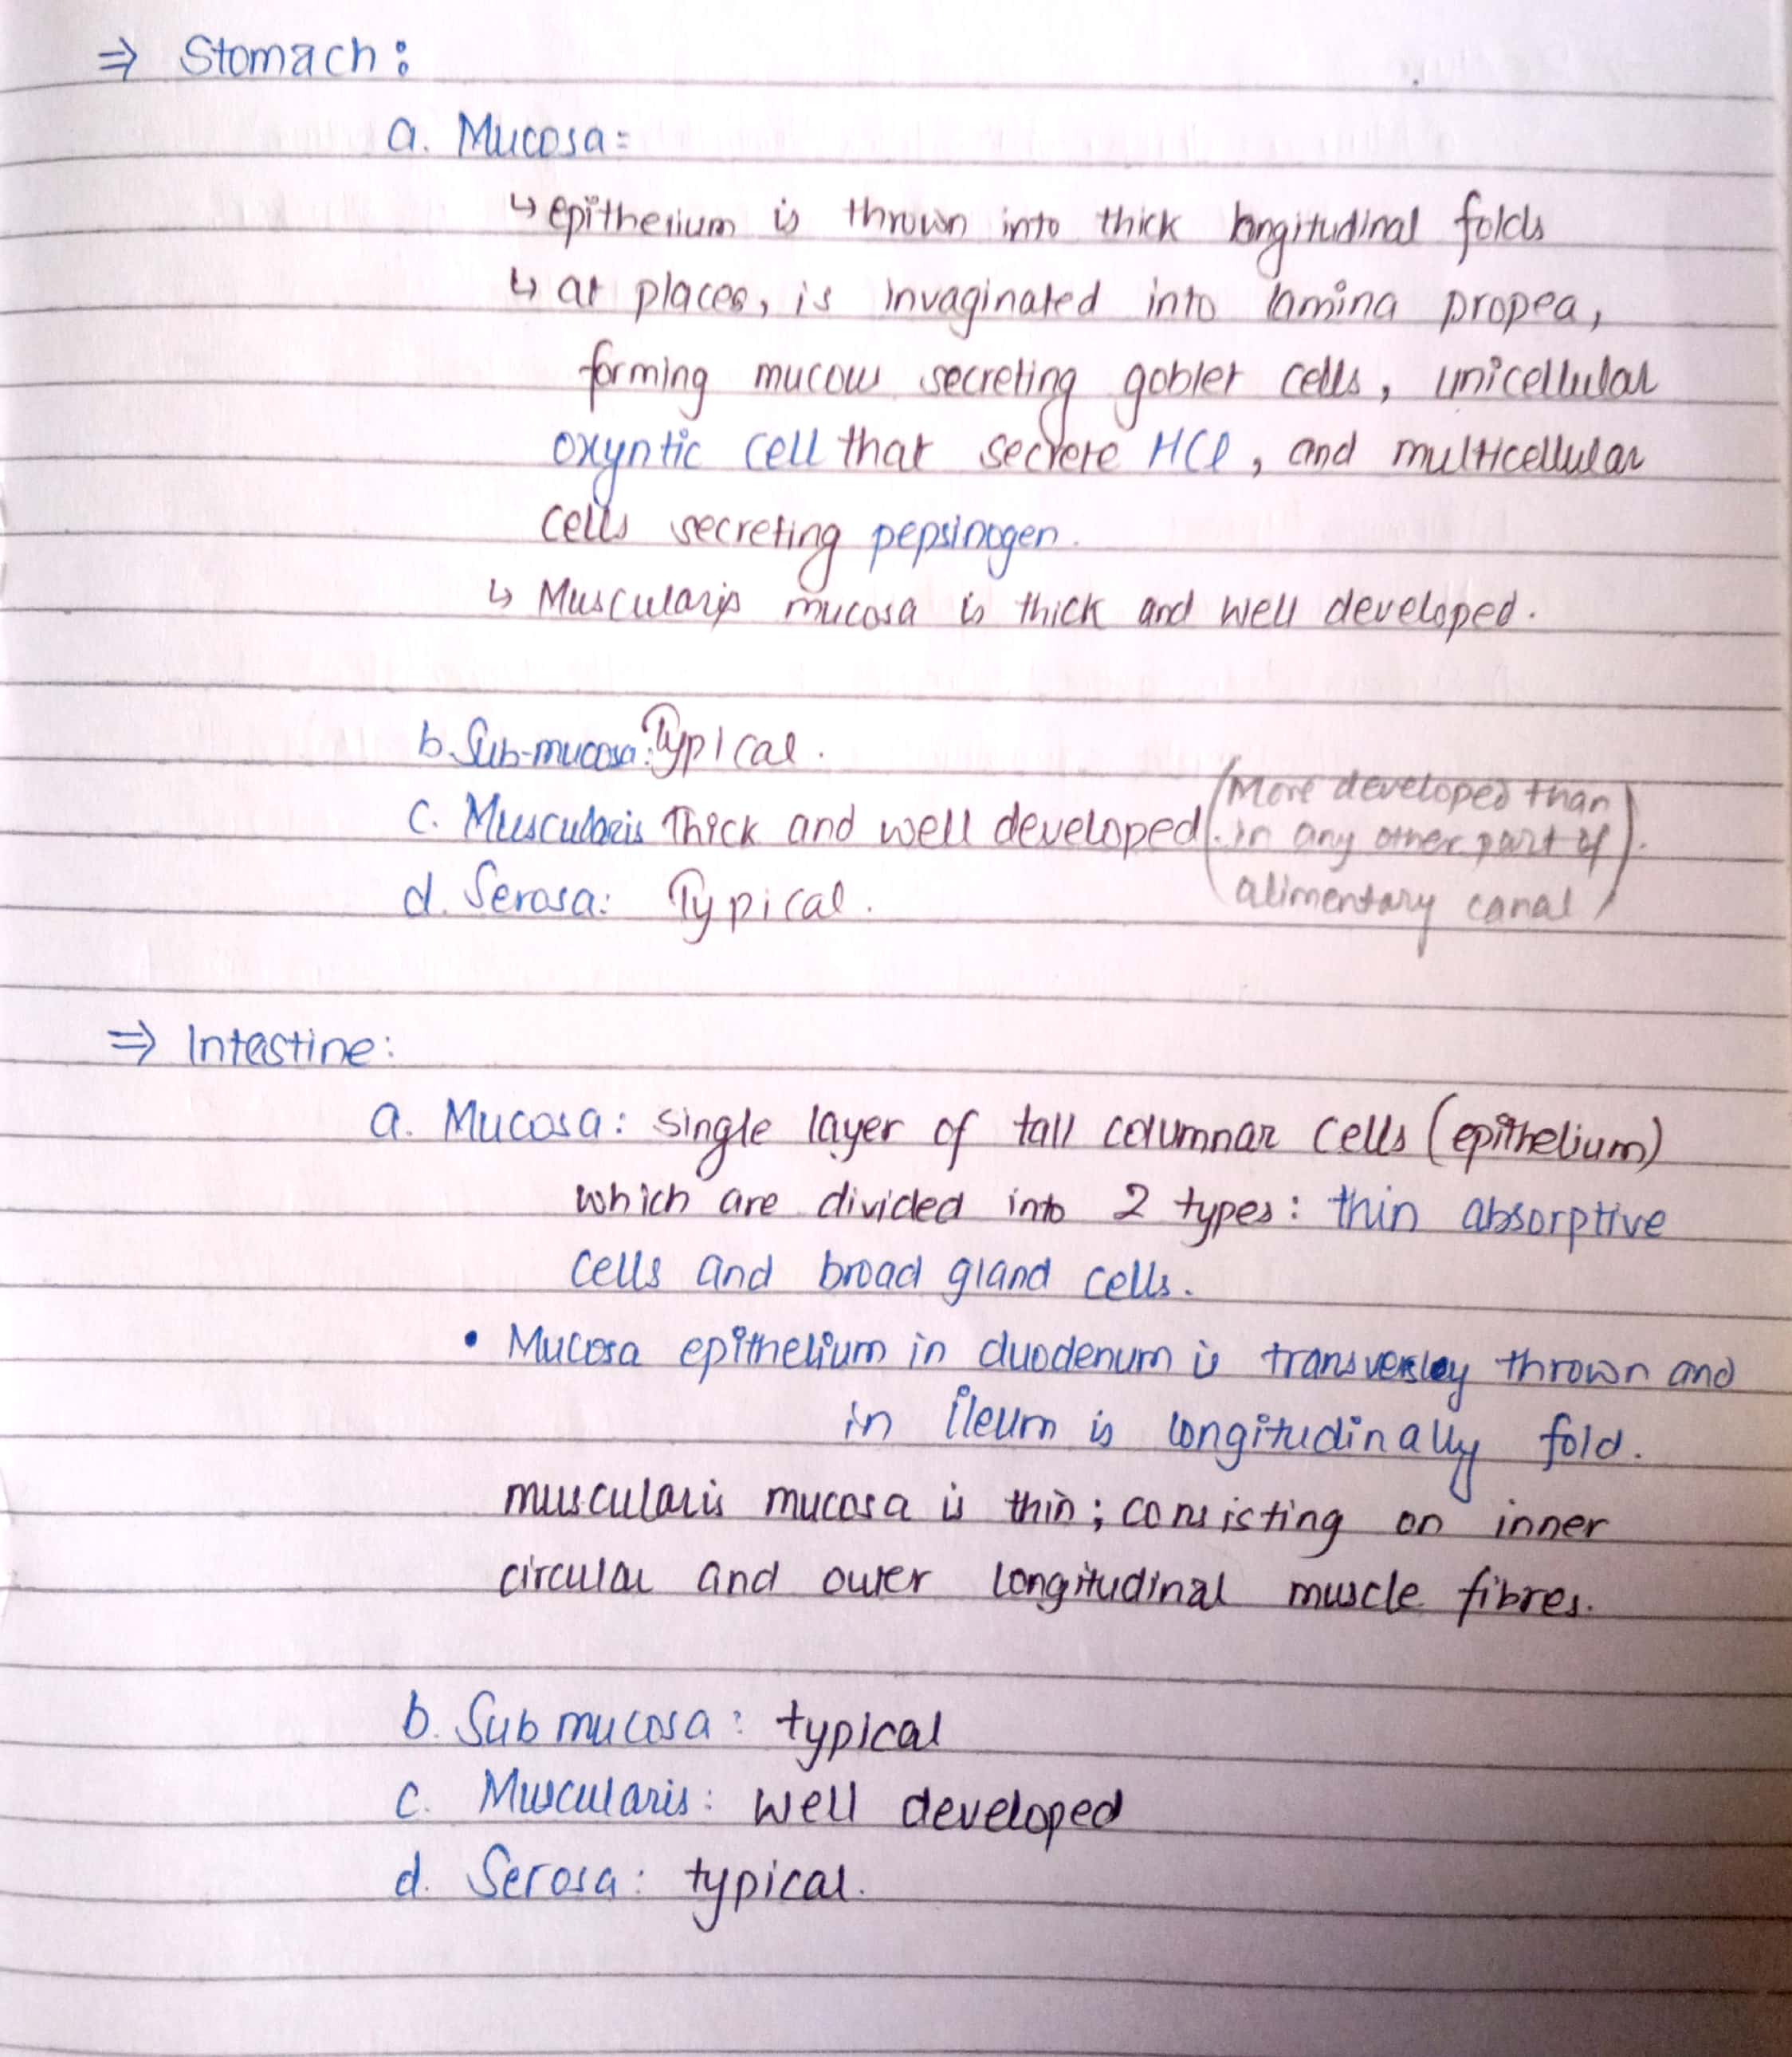 ⇒ Stomach:
a. Mucosa:
↳ epithelium is thrown into thick longitudinal folds
↳ at places, is invaginated into lamina propea,
forming mucous secreting goblet cells, unicellular
oxyntic cell that secrete HCl, and multicellular
cells secreting pepsinogen.
↳ Muscularis mucosa is thick and well developed.
b. Sub-mucosa: Typical.
c. Muscularis Thick and well developed. (More developed than
in any other part of
alimentary canal).
d. Serosa: Typical.
⇒ Intestine:
a. Mucosa: single layer of tall columnar cells (epithelium)
which are divided into 2 types: thin absorptive
cells and broad gland cells.
• Mucosa epithelium in duodenum is transversley thrown and
in ileum is longitudinally fold.
muscularis mucosa is thin; consisting on inner
circular and outer longitudinal muscle fibres.
b. Sub mucosa: typical
c. Muscularis: well developed
d. Serosa: typical.